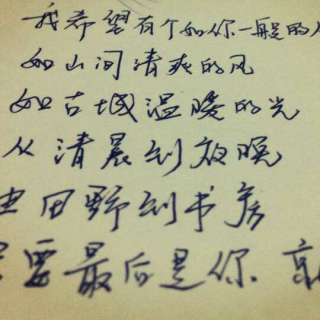 我希望有个如你一般的人
如山间清爽的风
如古城温暖的光
从清晨到夜晚
由田野到书房
只要最后是你 就